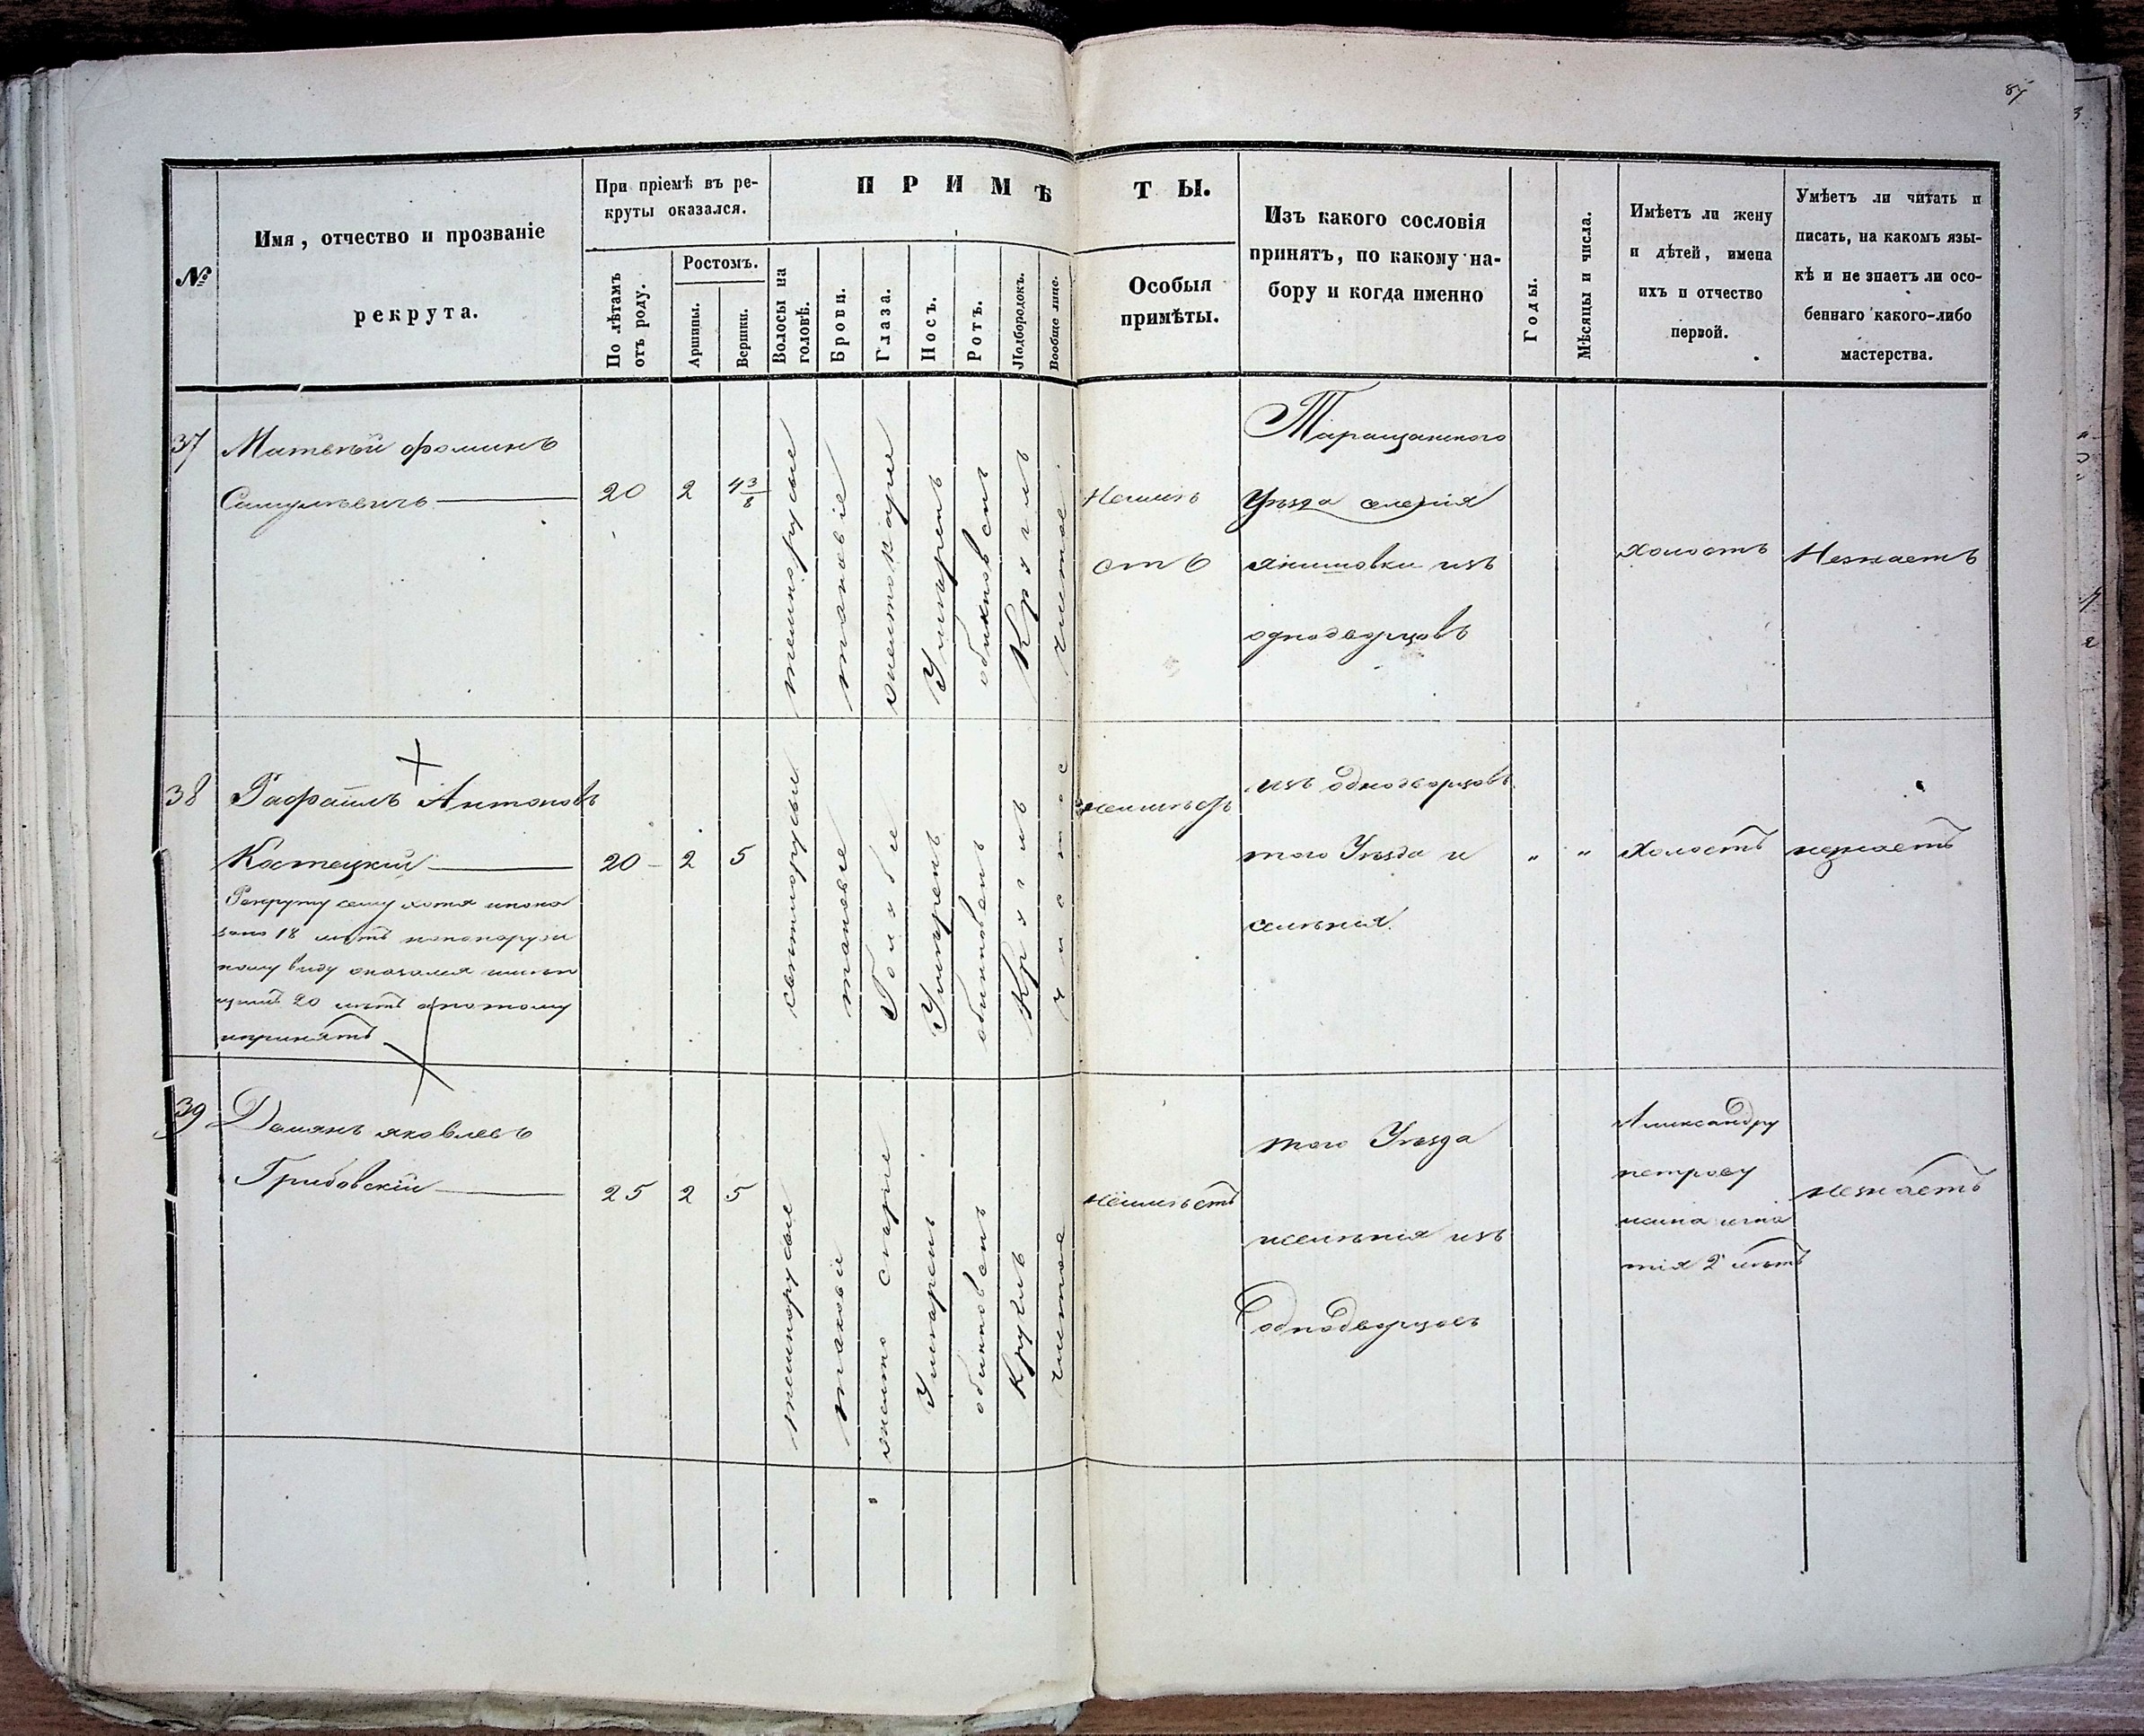 87
№
Имя, отчество и прозваніе
рекрута.
При пріемѣ въ ре-
круты оказался.
По лѣтамъ
отъ роду.
Ростомъ.
Аршины.
Вершки.
ПРИМѢТЫ.
Волосы на
головѣ.
Брови.
Глаза.
Носъ.
Ротъ.
Подбородокъ.
Вообще лице.
Особыя
примѣты.
Изъ какого сословія
принятъ, по какому на-
бору и когда именно
Годы.
Мѣсяцы и числа.
Имѣетъ ли жену
и дѣтей, имена
ихъ и отчество
первой.
Умѣетъ ли читать и
писать, на какомъ язы-
кѣ и не знаетъ ли осо-
беннаго какого-либо
мастерства.
37
Матвѣй Фоминъ
20
2
4 3/8
темнорусые
таковіе
Умѣренъ
обикновен
Круглъ
чистое
Неимѣ
етъ
Таращанскаго
Уѣзда селенія
янишовки изъ
однодворцовъ
холостъ
Незнаетъ
38
Рафаилъ Антоновъ
Костецкій
Рекруту сему хотя и пока
зано 18 лѣтъ но по наруж
ному виду оказался имѣю
щимъ 20 лѣтъ а потому
и принятъ
20
2
5
свѣтлорусые
таковые
Голубые
Умѣренъ
обикновен
Круглъ
чистое
неимѣетъ
изъ однодворцовъ
того Уѣзда и
селенія
"
"
Холостъ
незнаетъ
39
Домянъ яковлевъ
Грибовскій
25
2
5
темнорусые
таковы
Умѣренъ
обикновен
Круглъ
чистое
неимѣетъ
того Уѣзда
и селенія изъ
однодворцовъ
Александру
петрову
тія 2 лѣтъ
незнаетъ